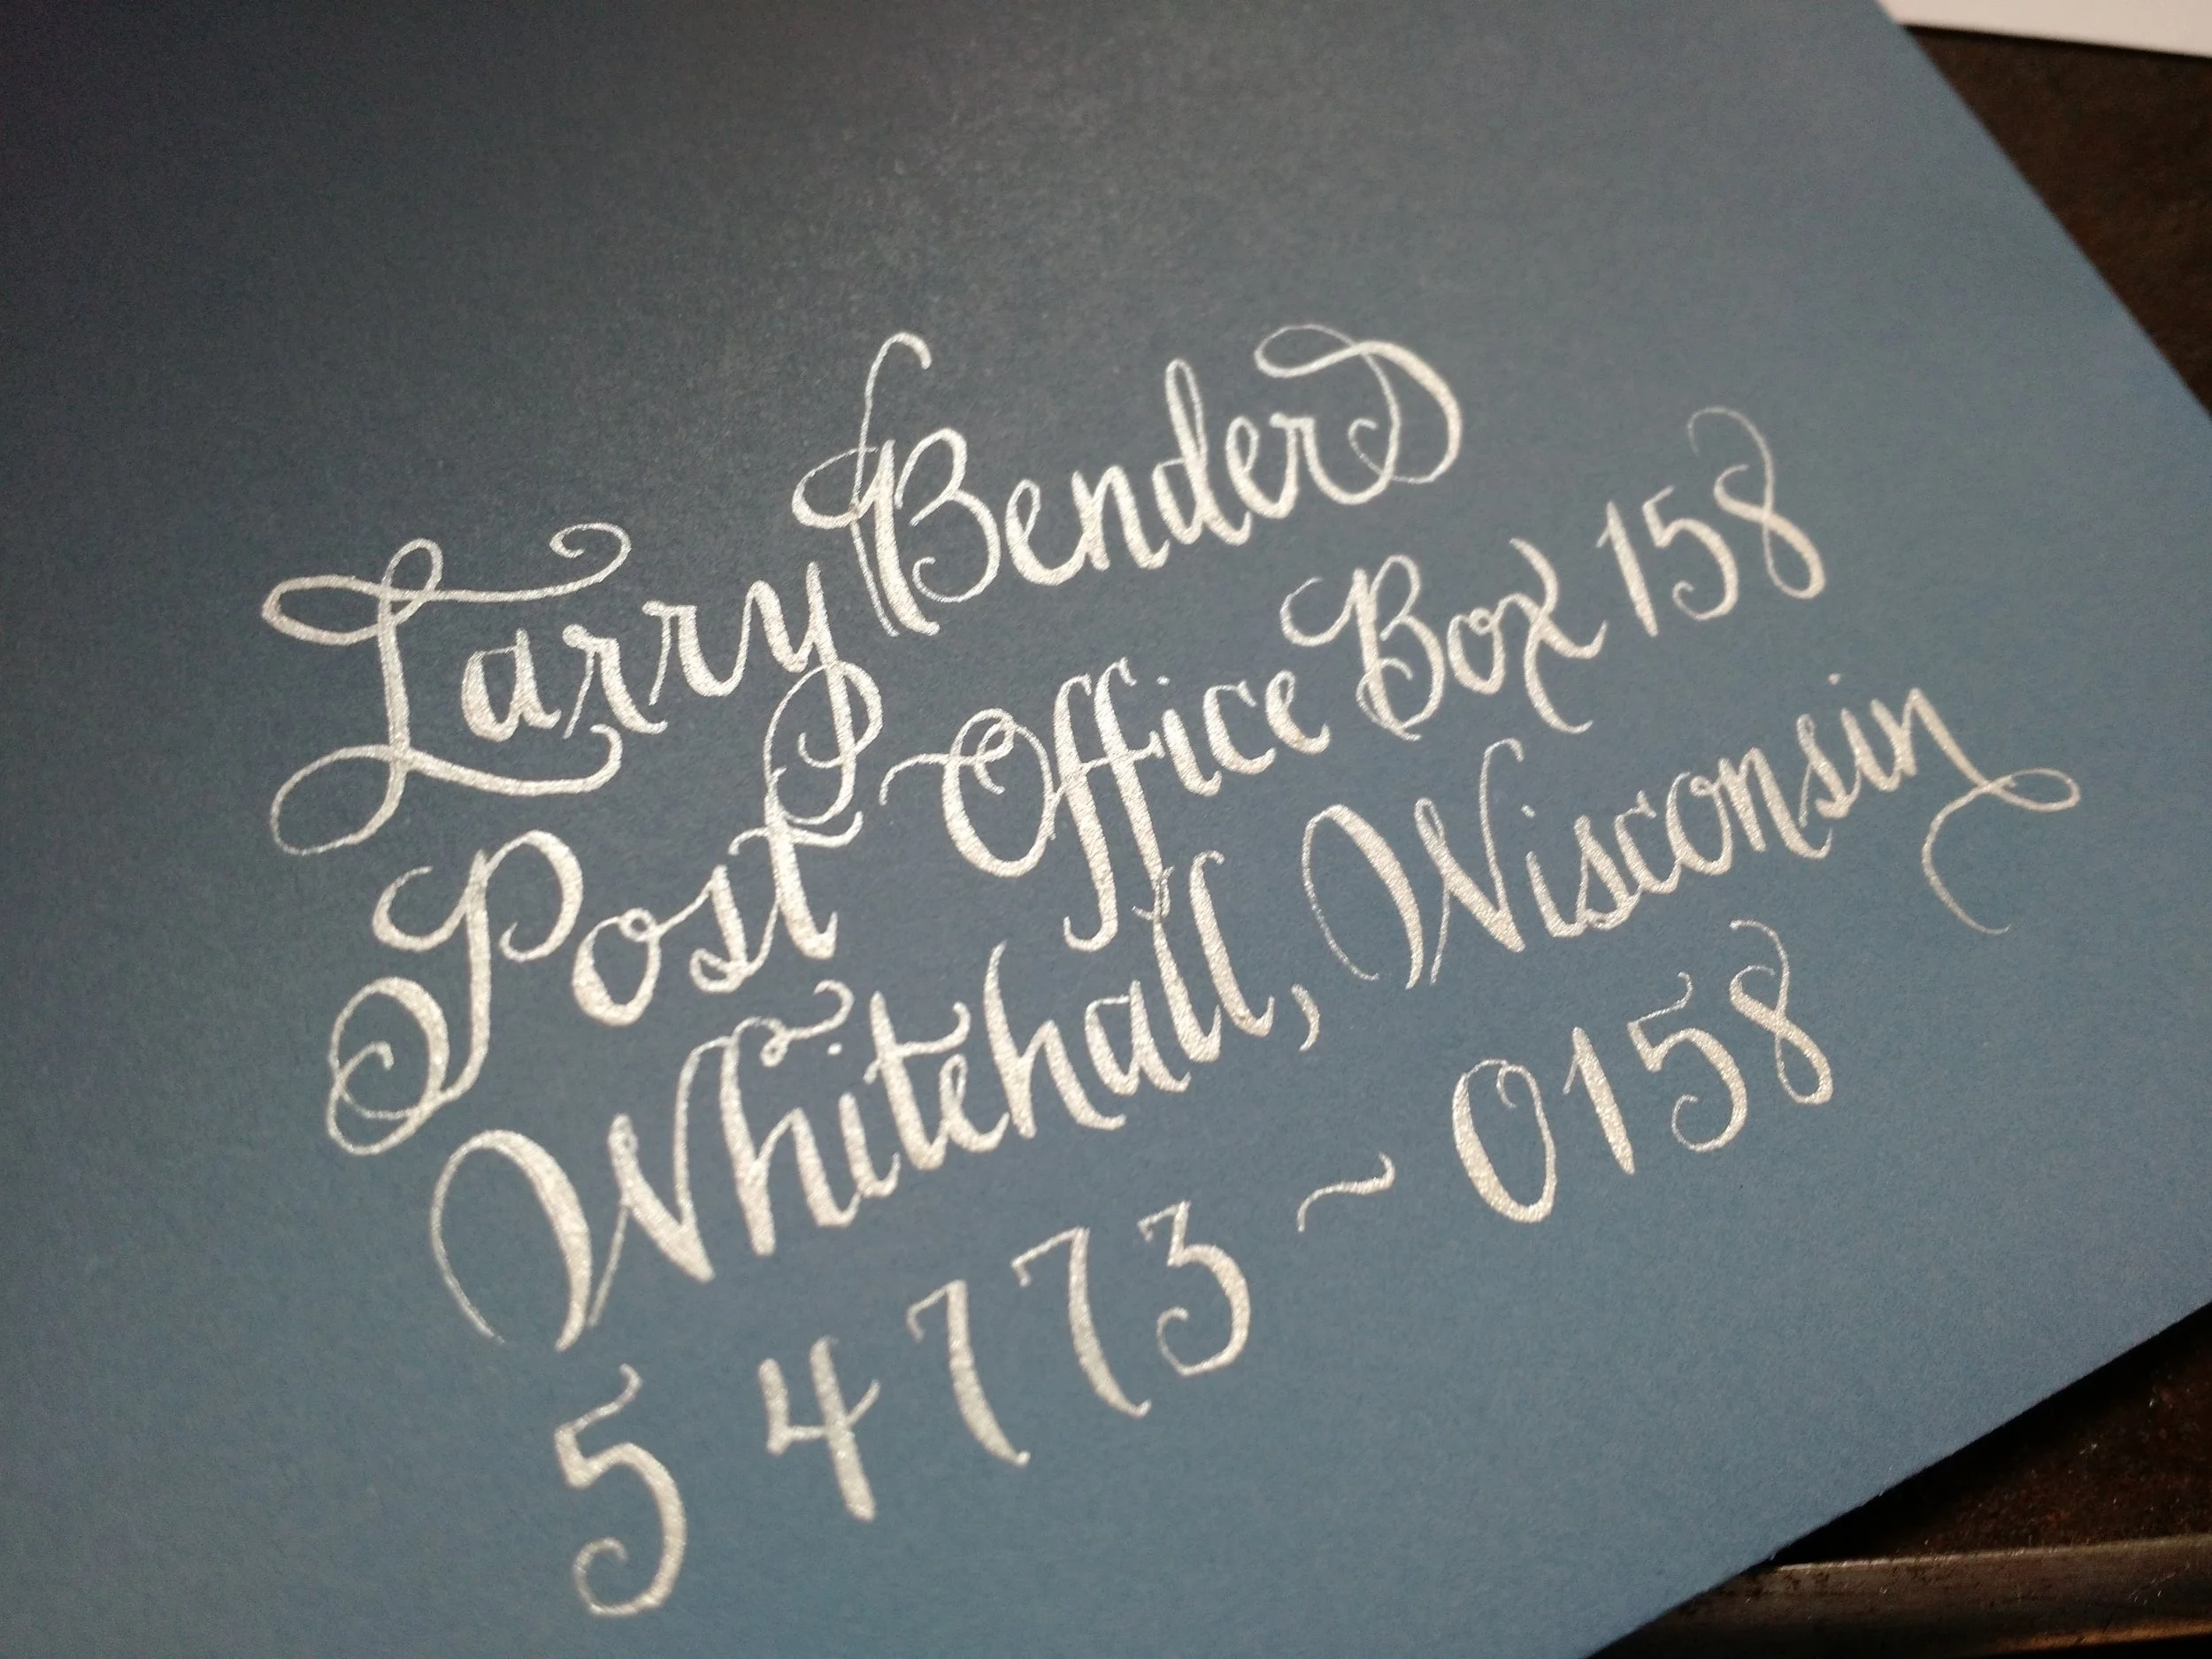 Larry Bender
Post Office Box 158
Whitehall, Wisconsin
54773~0158